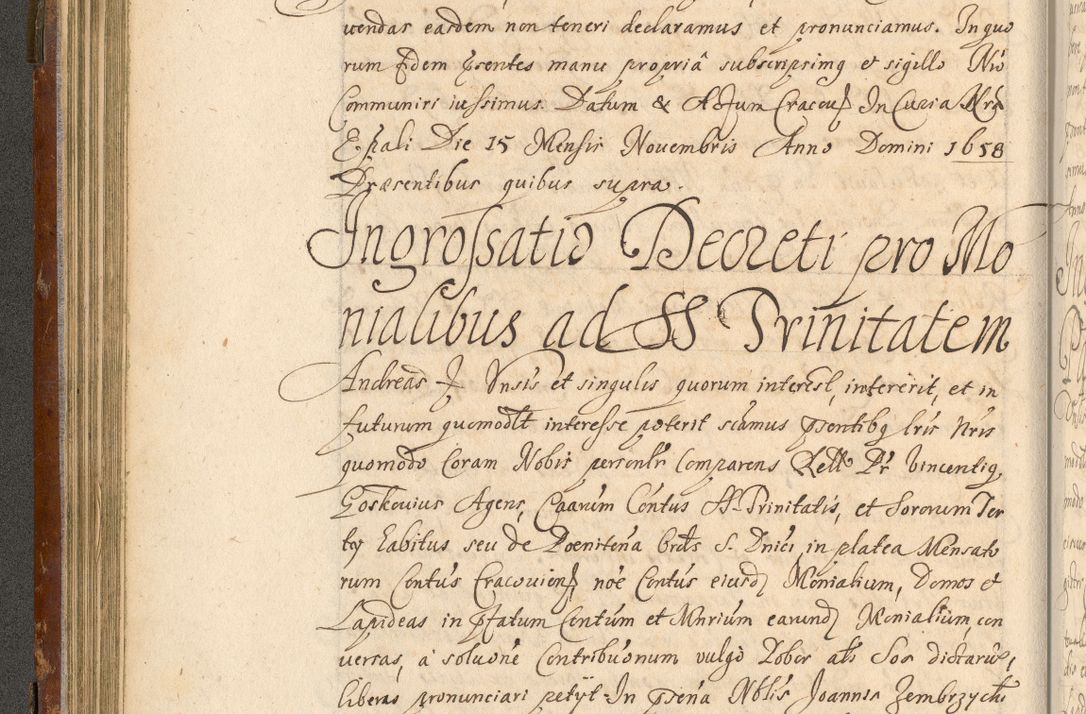 uendas easdem non teneri declaramus et pronunciamus. In quo
rum fidem psentes manu propriâ subscripsimq et sigillo Nro
Communiri iussimus. Datum & Actum Cracou In Curia Nrã
Epali Die 15 Mensis Nouembris Anno Domini 1658
Præsentibus quibus supra.
Ingrossatio Decreti pro Mo
nialibus ad SS Trinitatem
Andreas Vnsis et singulis quorum interest, intererit, et in
futurum quomodlt interesse poterit scimus psentibq lris Nris
quomodo Coram Nobis personlr Comparens Rell Pr Vincentiq
Goskouius Agens, Caarum Contus SS. Trinitatis, et Sororum Ter
tij habitus seu de Poenitena brds S. Dnici, in platea Mensato
rum Contus Cracouien, noe Contus eiusd Monialium, Domos et
Lapideas in pfatum Contum et Mnrium earund Monialium, con
uersas, a solvone Contribuonum vulgo Pobor als Sos dictarum,
liberas pronunciari petijt. In psena Nblis Joannis Zembrzychi